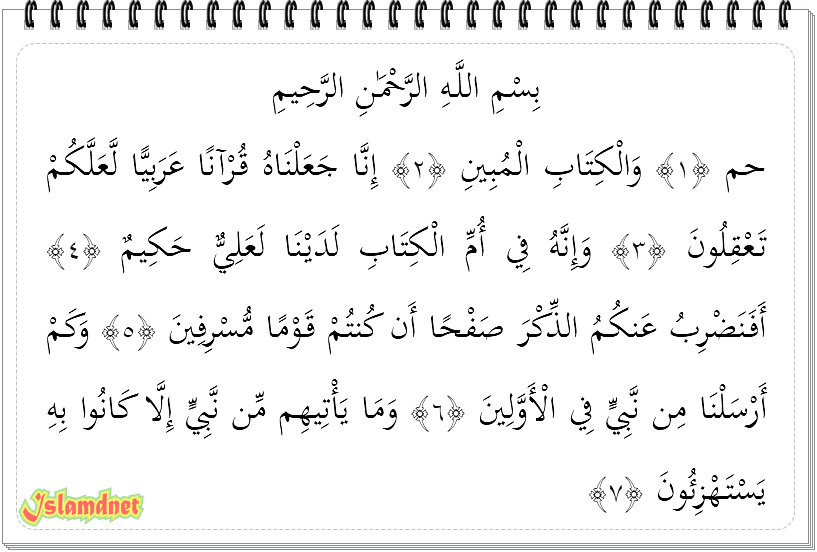 بِسْمِ اللَّهِ الرَّحْمَٰنِ الرَّحِيمِ
حم ﴿١﴾ وَالْكِتَابِ الْمُبِينِ ﴿٢﴾ إِنَّا جَعَلْنَاهُ قُرْآنًا عَرَبِيًّا لَّعَلَّكُمْ
تَعْقِلُونَ ﴿٣﴾ وَإِنَّهُ فِي أُمِّ الْكِتَابِ لَدَيْنَا لَعَلِيٌّ حَكِيمٌ ﴿٤﴾
أَفَنَضْرِبُ عَنكُمُ الذِّكْرَ صَفْحًا أَن كُنتُمْ قَوْمًا مُّسْرِفِينَ ﴿٥﴾ وَكَمْ
أَرْسَلْنَا مِن نَّبِيٍّ فِي الْأَوَّلِينَ ﴿٦﴾ وَمَا يَأْتِيهِم مِّن نَّبِيٍّ إِلَّا كَانُوا بِهِ
يَسْتَهْزِئُونَ ﴿٧﴾
Islamdnet